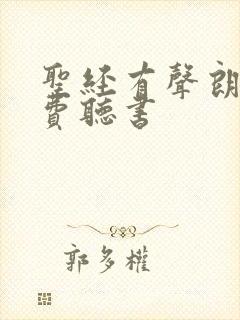 聖經有聲朗
費聽書
郭多權